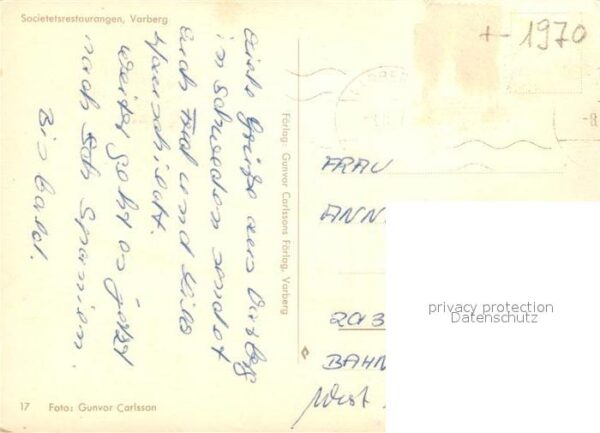 Societetsrestaurangen, Varberg
+- 1970
Viele Grüße aus Varberg
in Schweden sendet
Euch Fred und
Weiter geht es jetzt
nach Spanien.
Bis bald.
Förlag: Gunvor Carlssons Förlag, Varberg
FRAU
ANN
BAHN
West
privacy protection
Datenschutz
17 Foto: Gunvor Carlsson